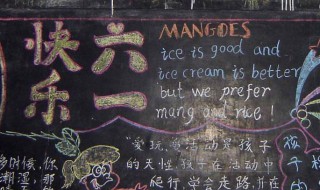 快六
乐一
MANGOES
ice is good and
ice cream is better
but we prefer
mang and rice !
“爱玩、爱活动是孩子
的天性,孩子在活动中
爬行,学会走路,并在
多时候,你